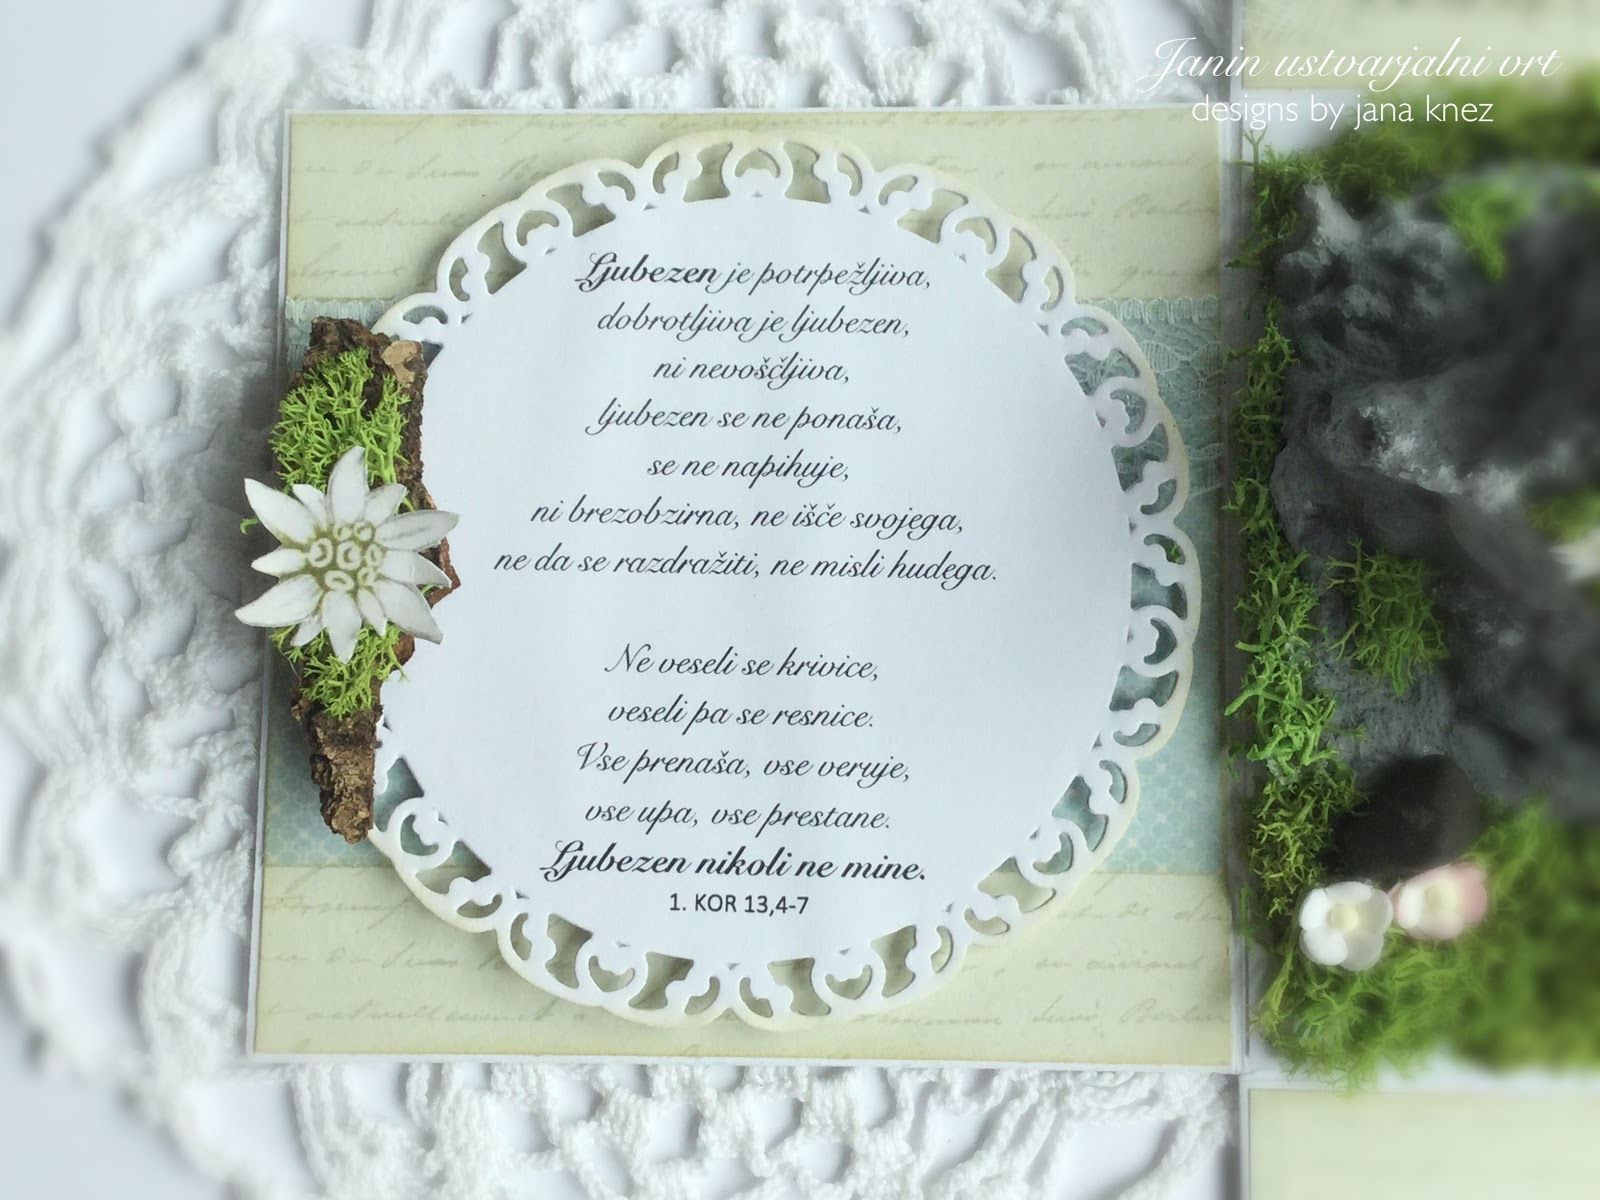 Janin ustvarjalni vrt
designs by jana knez
Ljubezen je potrpežljiva,
dobrotljiva je ljubezen,
ni nevoščljiva,
ljubezen se ne ponaša,
se ne napihuje,
ni brezobzirna, ne išče svojega,
ne da se razdražiti, ne misli hudega.
Ne veseli se krivice,
veseli pa se resnice.
Vse prenaša, vse veruje,
vse upa, vse prestane.
Ljubezen nikoli ne mine.
1. KOR 13,4-7